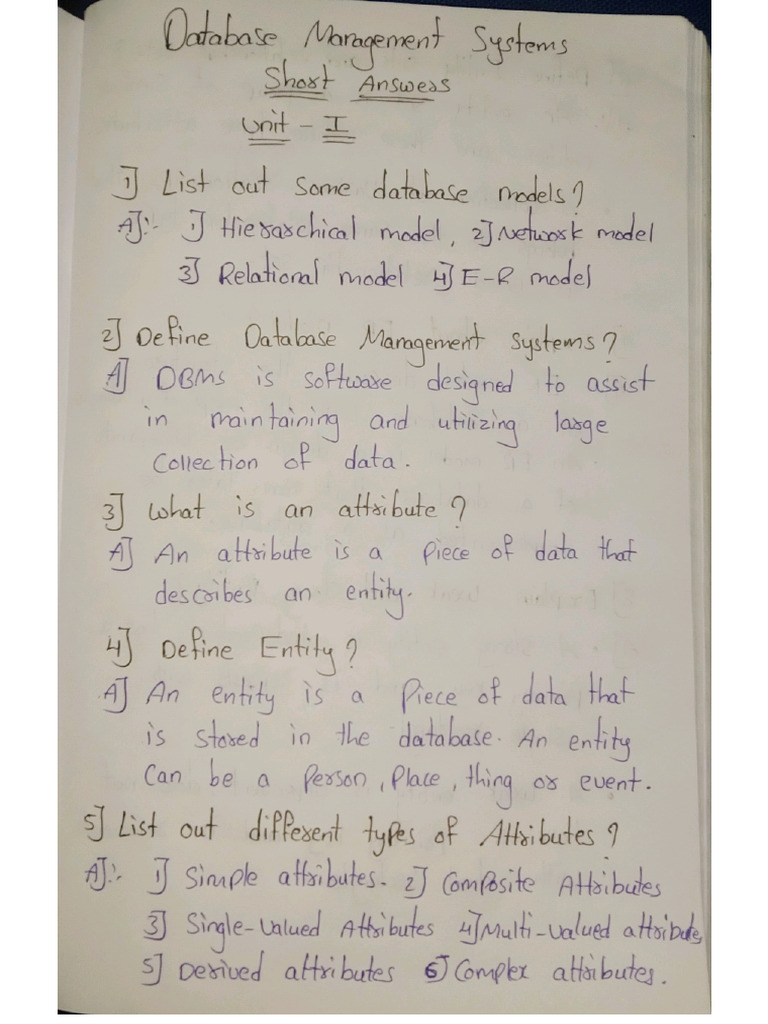 Database Management Systems
Short Answers
Unit - I
1] List out some database models?
A]:- 1] Hierarchical model, 2] Network model
3] Relational model 4] E-R model
2] Define Database Management Systems?
A] DBMS is software designed to assist
in maintaining and utilizing large
Collection of data.
3] What is an attribute?
A] An attribute is a piece of data that
describes an entity.
4] Define Entity?
A] An entity is a piece of data that
is stored in the database. An entity
Can be a person, place, thing or event.
5] List out different types of Attributes?
A]:- 1] Simple attributes. 2] Composite Attributes
3] Single-valued Attributes 4] Multi-valued attributes
5] Derived attributes 6] Complex attributes.